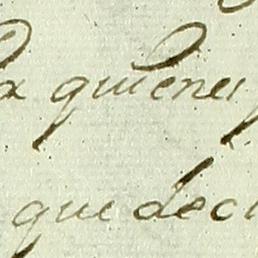 a quienes
que dec